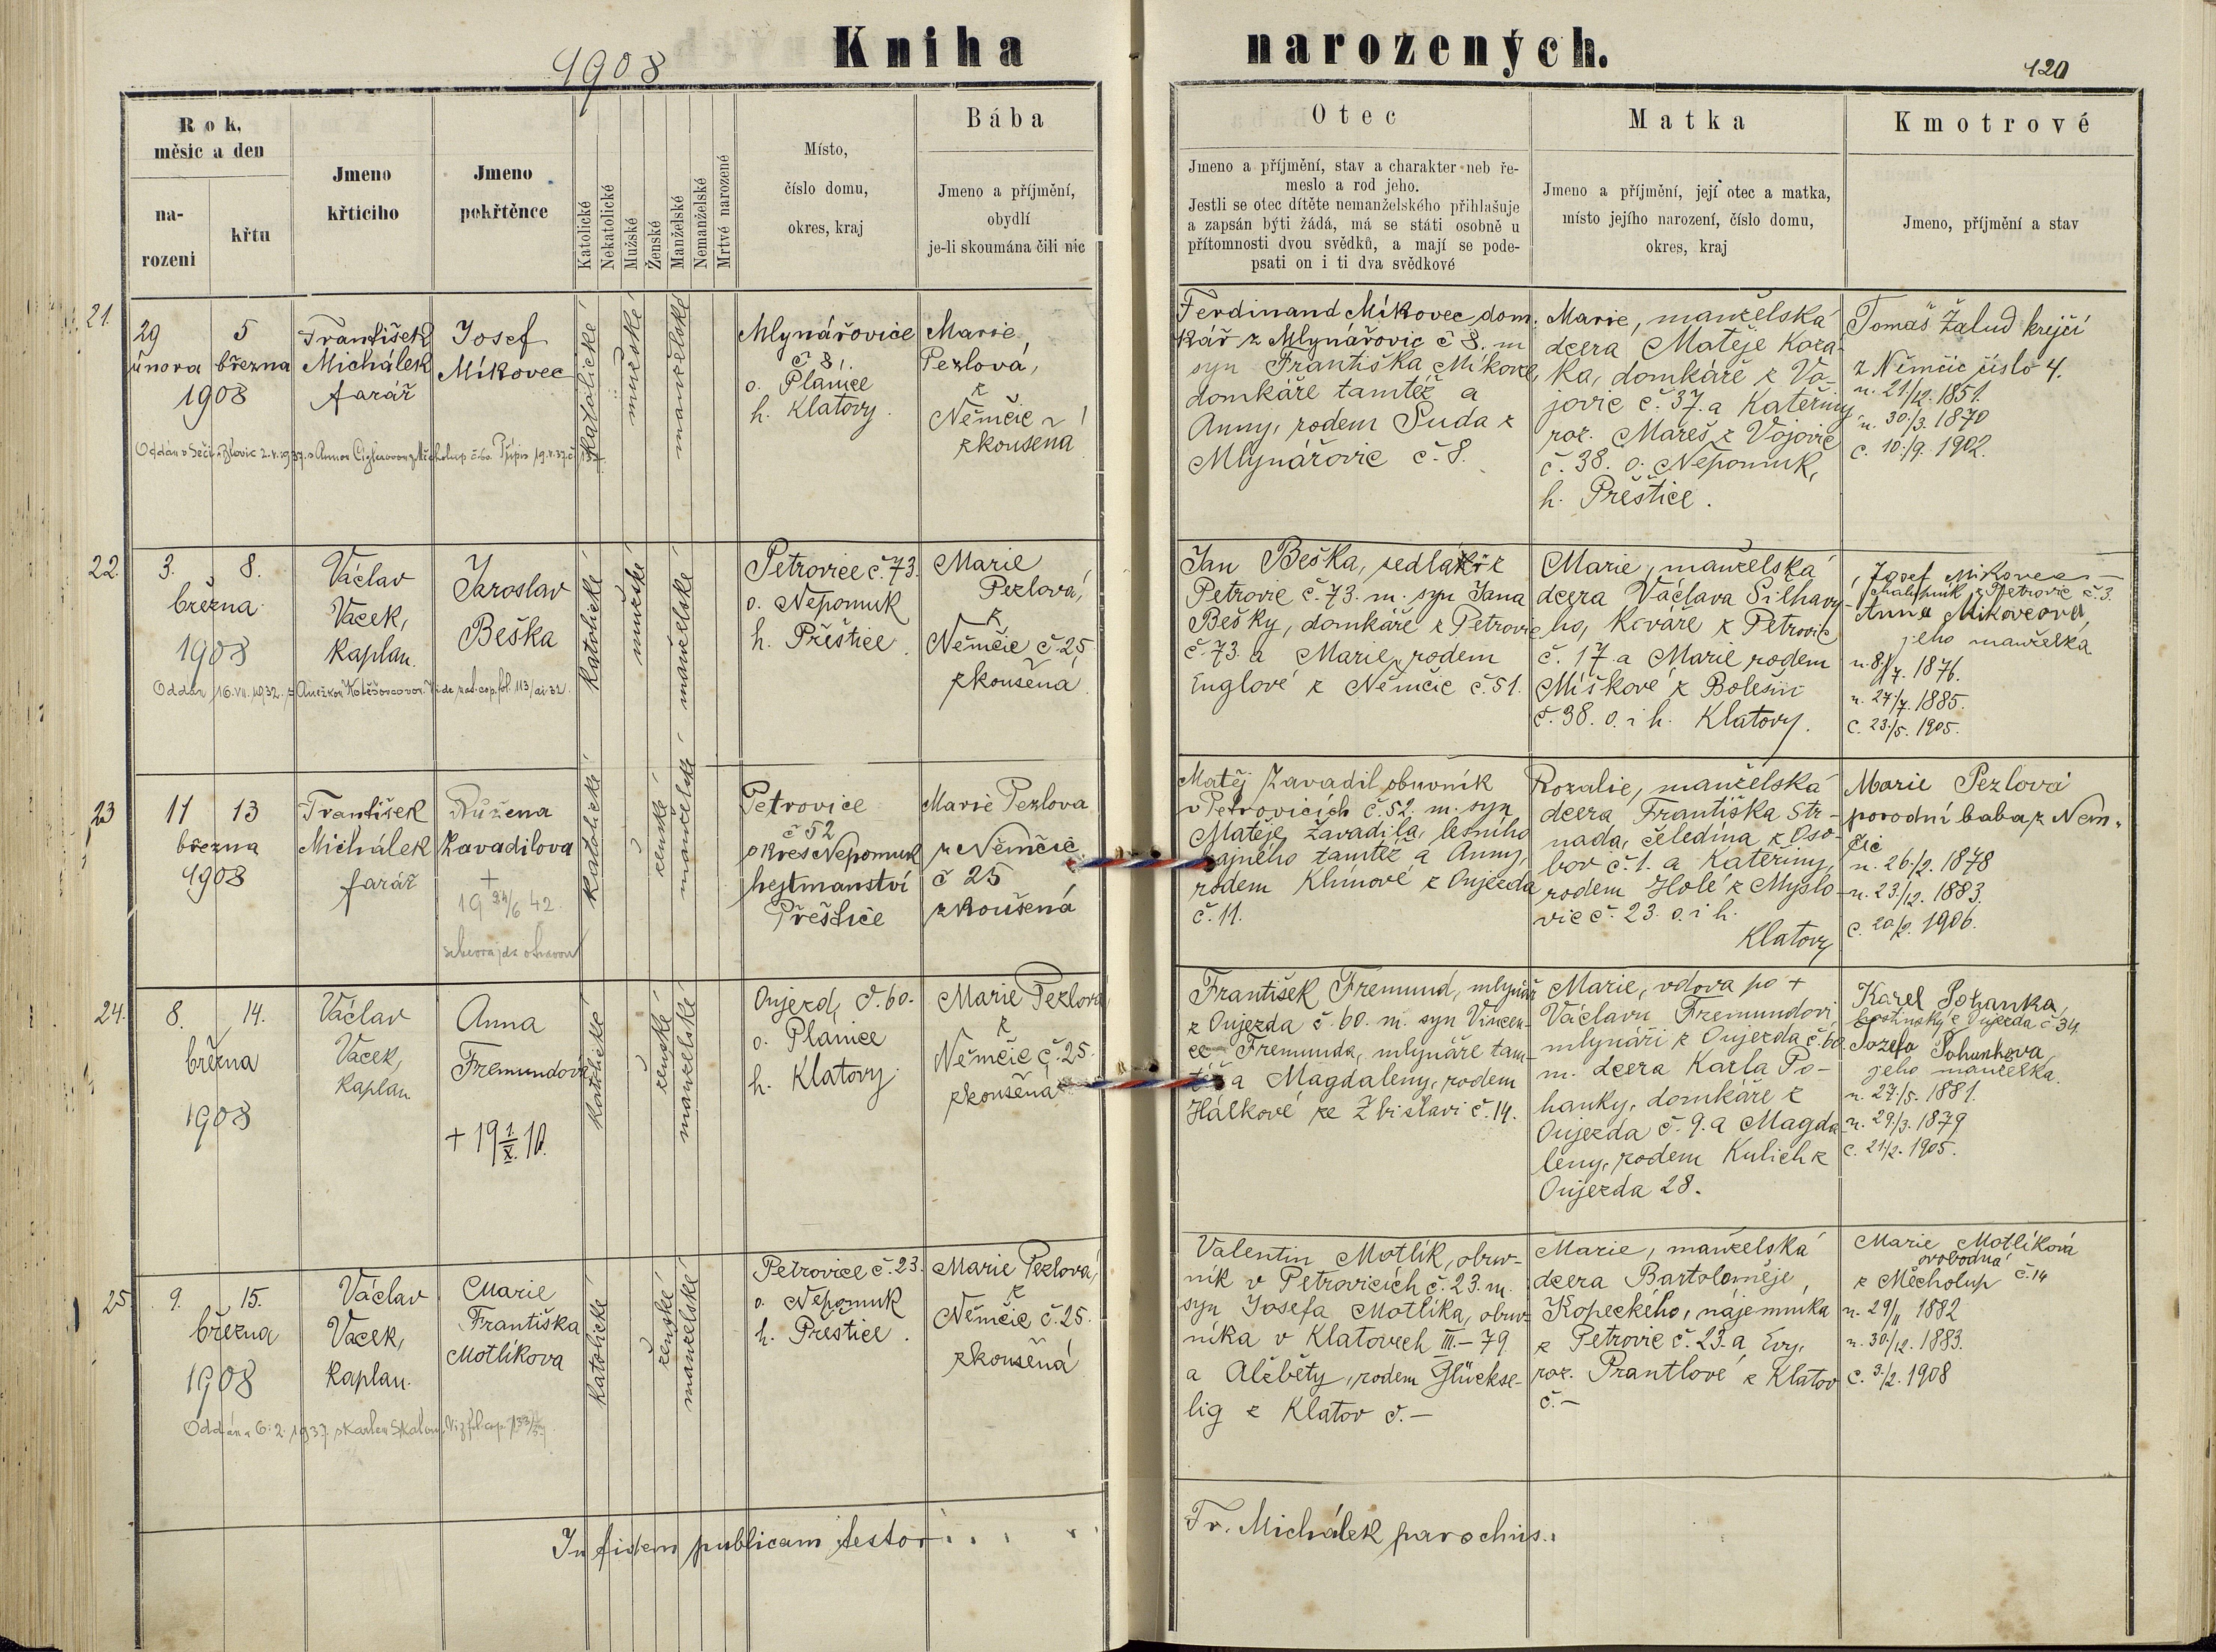 1908
Kniha narozených.
120
Rok, měsic a den
na-
rozeni
křtu
Jmeno
křticiho
Jmeno
pokřtěnce
Katolické
Nekatolické
Mužské
Ženské
Manželské
Nemanželské
Mrtvé narozené
Místo,
číslo domu,
okres, kraj
Bába
Jmeno a příjmění,
obydlí
je-li skoumána čili nic
Otec
Jmeno a příjmění, stav a charakter neb ře-
meslo a rod jeho.
Jestli se otec dítěte nemanželského přihlašuje
a zapsán býti žádá, má se státi osobně u
přítomnosti dvou svědků, a mají se pode-
psati on i ti dva svědkové
Matka
Jmeno a příjmění, její otec a matka,
místo jejího narození, číslo domu,
okres, kraj
Kmotrové
Jmeno, příjmění a stav
21.
29 5
února března
1908
František
Michálek
farář
Josef
Míkovec
katolické
mužské
manželské
Mlynářovice
č 8.
o. Planice
h. Klatovy.
Marie
Pezlová,
z
Němčic
zkoušená
Ferdinand Míkovec dom-
kář z Mlynářovic č 8. m
syn Františka Míkovce,
domkáře tamtéž a
Anny, rodem Suda z
Mlynářovic č. 8.
Marie, manželská
dcera Matěje Koza-
ka, domkáře z Vo-
jovic č. 37. a Kateřiny
roz. Mareš z Vojovic
č. 38. o. Nepomuk,
h. Přeštice.
Tomáš Žalud krejčí
z Němčic číslo 4.
n. 21/12. 1851.
n. 30./3. 1870
c. 10./9. 1902.
22.
3. 8.
března
1908
Václav
Vacek,
kaplan.
Jaroslav
Beška
Oddán 16.VII.1932.
katolické
mužské
manželské
Petrovice č. 73.
o. Nepomuk
h. Přeštice.
Marie
Pezlová,
z
Němčic č. 25,
zkoušená
Jan Beška, sedlák z
Petrovic č. 73. m. syn Jana
Bešky, domkáře z Petrovic
č. 73. a Marie, rodem
Englové z Němčic č. 51.
Marie, manželská
dcera Václava Šilhavy-
ho, kováře z Petrovic
č. 17. a Marie rodem
Míškové z Bolešin
č. 38. o. i h. Klatovy.
Josef Míkovec
chalupník z Petrovic č. 3.
Anna Míkovcová,
jeho manželka
n. 8/7. 1876.
n. 27/7. 1885.
c. 23./5. 1905.
23
11 13
března
1908
František
Michálek
farář
Růžena
Zavadilova
+
19 24/6 42.
katolické
ženské
manželské
Petrovice
č 52
okres Nepomuk
hejtmanství
Přeštice
Marie Pezlova
z Němčic
č 25
zkoušená
Matěj Zavadil obuvník
v Petrovicích č. 52. m. syn
Matěje Zavadila, lesního
hajného tamtéž a Anny,
rodem Klímové z Oujezda
č. 11.
Rozalie, manželská
dcera Františka Str-
nada, čeledína z Oso-
bov č. 1. a Kateřiny,
rodem Holé z Myslo-
vic č. 23. o. i h.
Klatovy
Marie Pezlová
porodní baba z Něm-
čic
n. 26./2. 1878
n. 23./12. 1883.
c. 20/2. 1906.
24.
8. 14.
března
1908
Václav
Vacek,
kaplan
Anna
Fremundová
+ 19 1./X. 10.
katolické
ženské
manželské
Oujezd, č. 60.
o. Planice
h. Klatovy.
Marie Pezlová
z
Němčic č. 25.
zkoušená
František Fremund, mlynář
z Oujezda č. 60. m. syn Vincen-
ce Fremunda, mlynáře tam-
též a Magdaleny, rodem
Hálkové ze Zbislavi č. 14.
Marie, vdova po +
Václavu Fremundovi
mlynáři z Oujezda č. 60.
m. dcera Karla Po-
hanky, domkáře z
Oujezda č. 9. a Magda-
leny, rodem Kulich z
Oujezda 28.
Karel Pohanka,
hostinský z Oujezda č 34.
Josefa Pohankova,
jeho manželka.
n. 27./5. 1881.
n. 29./3. 1879
c. 21/2. 1905.
25
9. 15.
března
1908
Václav
Vacek,
kaplan.
Marie
Františka
Motlíkova
Oddána 6. 2. 1937. s Karlem
katolické
ženské
manželské
Petrovice č. 23.
o. Nepomuk
h. Prestice.
Marie Pezlová,
z
Němčic č. 25.
zkoušená
Valentin Motlík, obuv-
ník v Petrovicích č. 23. m.
syn Josefa Motlíka, obuv-
níka v Klatovech III.–79.
a Alžběty, rodem Glückse-
lig z Klatov č. –
Marie, manželská
dcera Bartoloměje
Kopeckého, nájemníka
z Petrovic č. 23. a Evy,
roz. Prantlové z Klatov
č. –
Marie Motlíková
svobodná
z Měcholup č. 14
n. 29/11 1882
n. 30./12. 1883.
c. 3./2. 1908
In fidem publicam testor . . . .
Fr. Michálek parochus.